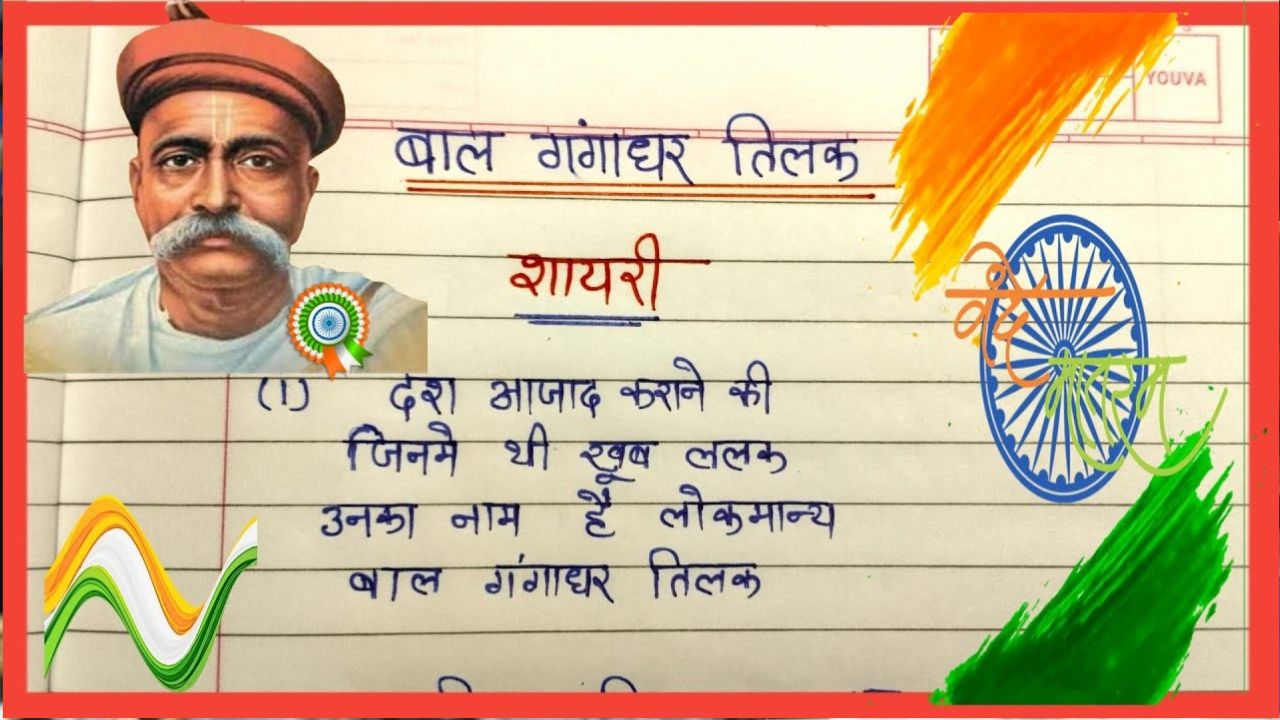 YOUVA
बाल गंगाधर तिलक
शायरी
वंदे
मातरम
(1) देश आजाद कराने की
जिनमे थी खूब ललक
उनका नाम है लोकमान्य
बाल गंगाधर तिलक